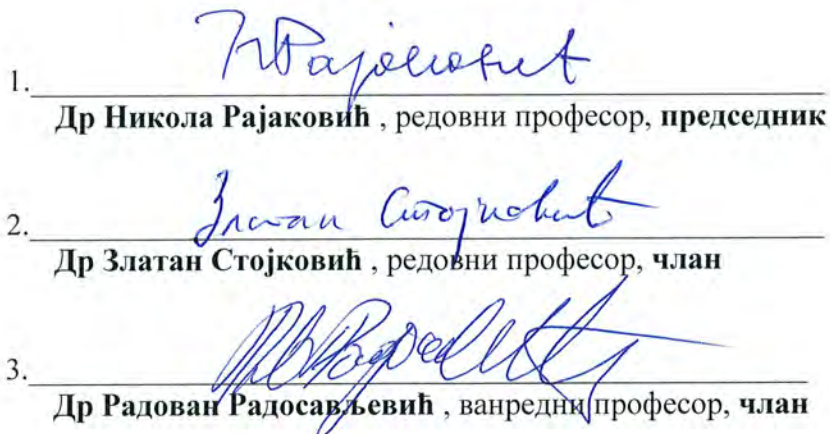 1.
Др Никола Рајаковић , редовни професор, председник
Златан Стојковић
2.
Др Златан Стојковић , редовни професор, члан
3.
Др Радован Радосављевић , ванредни професор, члан